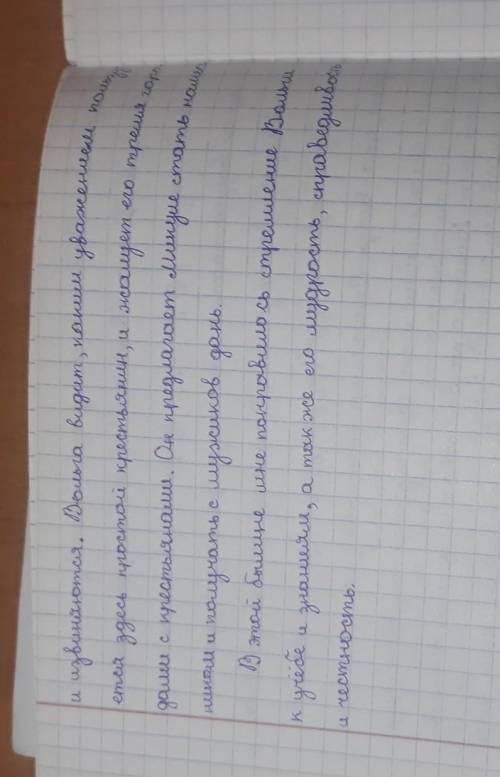 и извиняются. Вольга видит, каким уважением польз
ется здесь простой крестьянин, и жалует его тремя горо
дами с крестьянами. Он предлагает Микуле стать намест
ником и получать с мужиков дань.
В этой былине мне понравилось стремление Вольги
к учёбе и знаниям, а также его мудрость, справедливость
и честность.